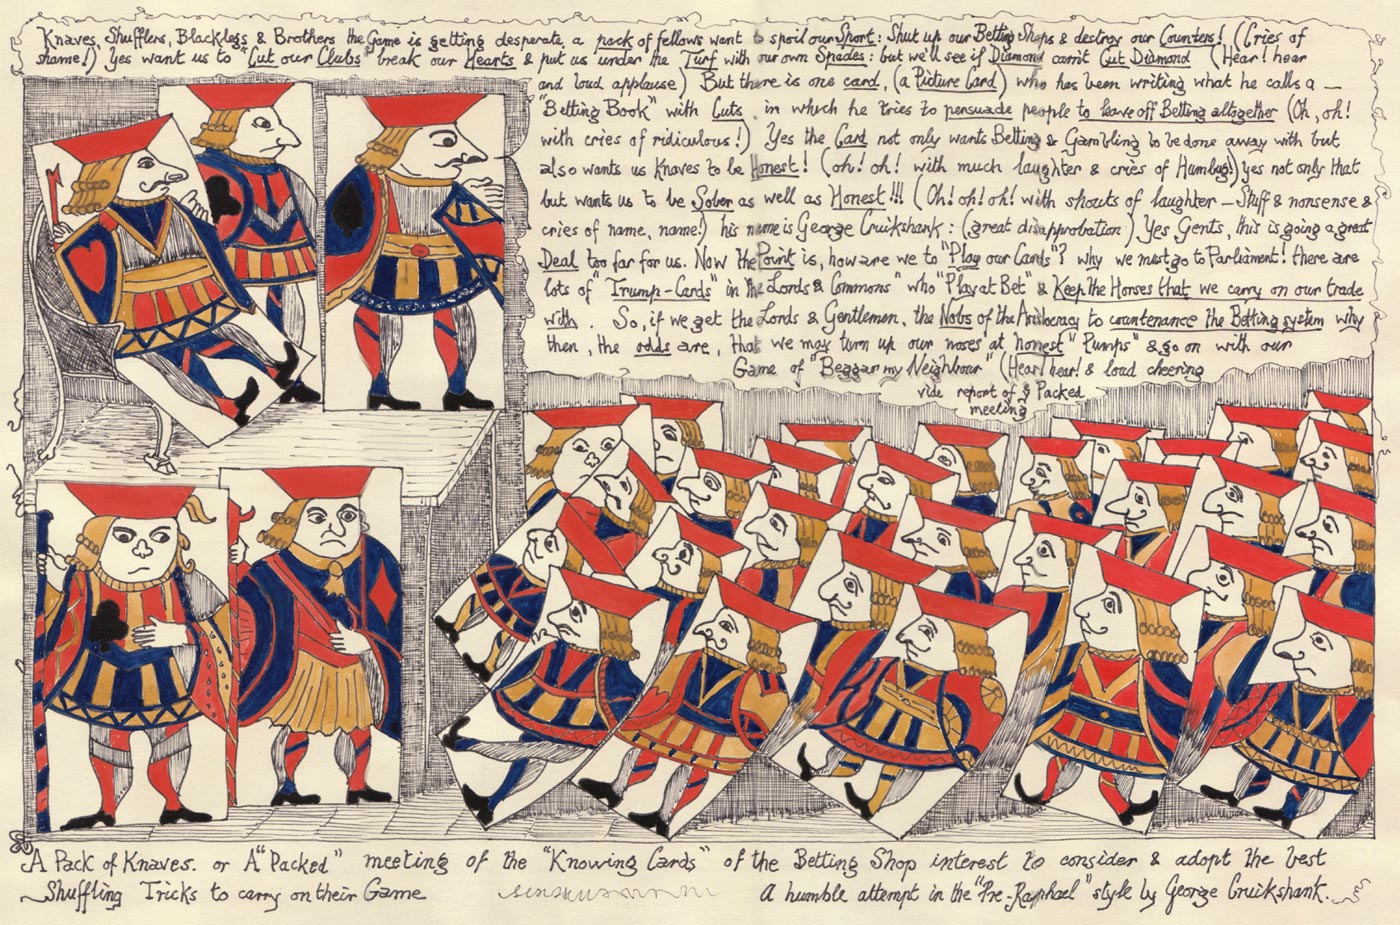 Knaves, Shufflers, Blacklegs & Brothers the Game is getting desperate a pack of fellows want to spoil our Sport: Shut up our Betting Shops & destroy our Counters! (Cries of
shame!) Yes want us to "Cut our Clubs" break our Hearts & put us under the Turf with our own Spades: but we'll see if Diamond can't Cut Diamond (Hear! hear
and loud applause) But there is one card, (a Picture Card) who has been writing what he calls a —
"Betting Book" with Cuts, in which he tries to persuade people to leave off Betting altogether (Oh, oh!
with cries of ridiculous!) Yes the Card not only wants Betting & Gambling to be done away with but
also wants us Knaves to be Honest! (oh! oh! with much laughter & cries of Humbug!) yes not only that
but wants us to be Sober as well as Honest!!! (Oh! oh! oh! with shouts of laughter — Stuff & nonsense &
cries of name, name!) his name is George Cruikshank: (great disapprobation) Yes Gents, this is going a great
Deal too far for us. Now the Point is, how are we to "Play our Cards"? why we must go to Parliament! there are
lots of "Trump-Cards" in the Lords & Commons" who "Play at Bet" & Keep the Horses that we carry on our trade
with. So, if we get the Lords & Gentlemen, the Nobs of the Aristocracy to countenance the Betting system why
then, the odds are, that we may turn up our noses at "honest" Pumps" & go on with our
Game of "Beggar my Neighbour" (Hear! hear! & loud cheering
vide report of § Packed
meeting
A Pack of Knaves. or A "Packed" meeting of the "Knowing Cards" of the Betting Shop interest to consider & adopt the best
Shuffling Tricks to carry on their Game
A humble attempt in the "Pre-Raphael" style by George Cruikshank.